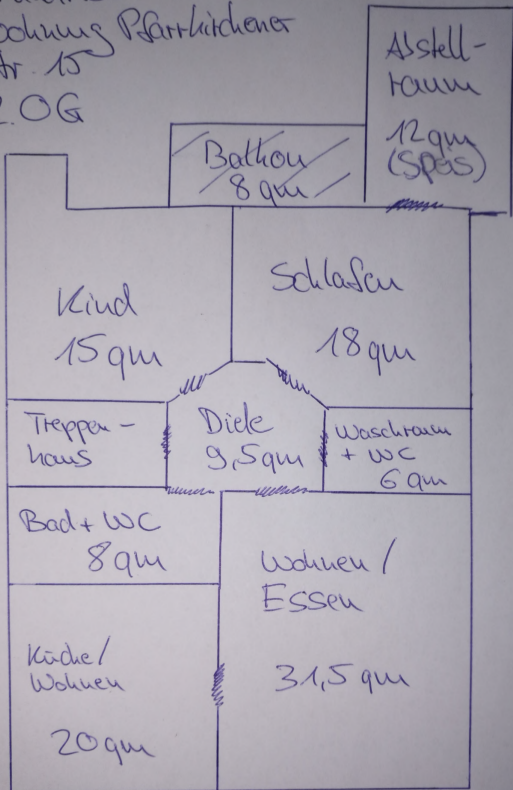 Wohnung Pfarrkirchener
Str. 15
2. OG
Abstell-
raum
12 qm
(Speis)
Balkon
8 qm
Kind
15 qm
Schlafen
18 qm
Treppen-
haus
Diele
9,5 qm
Waschraum
+ WC
6 qm
Bad + WC
8 qm
Wohnen /
Essen
31,5 qm
Küche/
Wohnen
20 qm